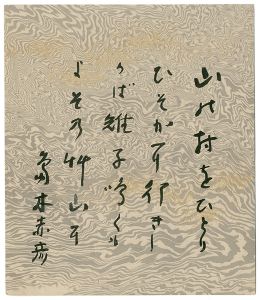 山の村をひとり
ひそか耳行きし
かば雉子鳴くも
よその竹山耳
島木赤彦